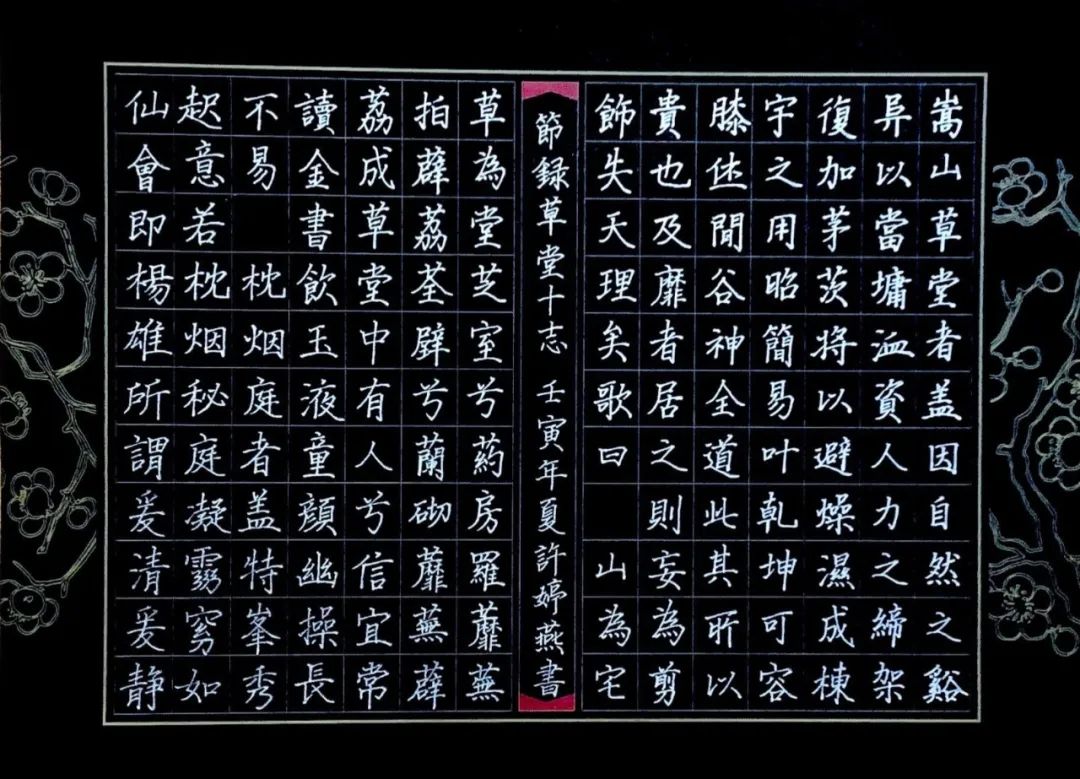 嵩山草堂者盖因自然之谿
异以當墉洫資人力之締架
復加茅茨将以避燥濕成棟
宇之用昭簡易叶乾坤可容
膝休閒谷神全道此其所以
貴也及靡者居之則妄為剪
飾失天理矣歌曰 山為宅
節録草堂十志 壬寅年夏許婷燕書
草為堂芝室兮葯房羅蘼蕪
拍薜荔荃壁兮蘭砌蘼蕪薜
荔成草堂中有人兮信宜常
讀金書飲玉液童顔幽操長
不易 枕烟庭者盖特峯秀
起意若枕烟秘庭凝霧穷如
仙會即楊雄所謂爰清爰静